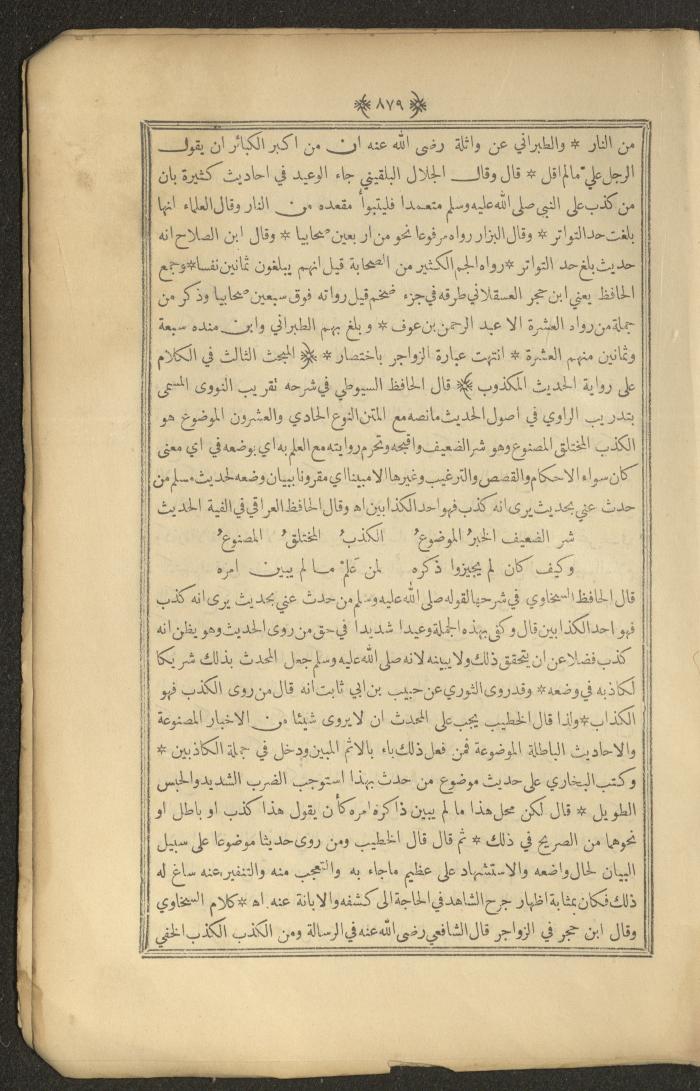 ﴿ ٨٧٩ ﴾
من النار * والطبراني عن واثلة رضى الله عنه ان من اكبر الكبائر ان يقول
الرجل عليّ مالم اقل * قال وقال الجلال البلقيني جاء الوعيد في احاديث كثيرة بان
من كذب على النبي صلى الله عليه وسلم متعمدا فليتبوأ مقعده من النار وقال العلماء انها
بلغت حد التواتر * وقال البزار رواه مرفوعا نحو من اربعين صحابيا * وقال ابن الصلاح انه
حديث بلغ حد التواتر * رواه الجم الكثير من الصحابة قيل انهم يبلغون ثمانين نفسا * وجمع
الحافظ يعني ابن حجر العسقلاني طرقه في جزء ضخم قيل رواته فوق سبعين صحابيا وذكر من
جملة من رواه العشرة الا عبد الرحمن بن عوف * وبلغ بهم الطبراني وابن منده سبعة
وثمانين منهم العشرة * انتهت عبارة الزواجر باختصار * ﴿ المبحث الثالث في الكلام
على رواية الحديث المكذوب ﴾ قال الحافظ السيوطي في شرحه تقريب النووى المسمى
بتدريب الراوي في اصول الحديث مانصه مع المتن النوع الحادي والعشرون الموضوع هو
الكذب المختلق المصنوع وهو شر الضعيف واقبحه وتحرم روايته مع العلم به اي بوضعه في اي معنى
كان سواء الاحكام والقصص والترغيب وغيرها الا مبينا اي مقرونا ببيان وضعه لحديث مسلم من
حدث عني بحديث يرى انه كذب فهو احد الكذابين اه وقال الحافظ العراقي في الفية الحديث
شر الضعيف الخبرُ الموضوعُ الكذبُ المختلقُ المصنوعُ
وكيف كان لم يجيزوا ذكره لمن عَلِمْ مالم يبين امره
قال الحافظ السخاوي في شرحها لقوله صلى الله عليه وسلم من حدث عني بحديث يرى انه كذب
فهو احد الكذابين قال وكفى بهذه الجملة وعيدا شديدا في حق من روى الحديث وهو يظن انه
كذب فضلا عن ان يتحقق ذلك ولا يبينه لانه صلى الله عليه وسلم جعل المحدث بذلك شريكا
لكاذبه في وضعه * وقد روى الثوري عن حبيب بن ابي ثابت انه قال من روى الكذب فهو
الكذاب * ولذا قال الخطيب يجب على المحدث ان لا يروى شيئا من الاخبار المصنوعة
والاحاديث الباطلة الموضوعة فمن فعل ذلك باء بالاثم المبين ودخل في جملة الكاذبين *
وكتب البخاري على حديث موضوع من حدث بهذا استوجب الضرب الشديد والحبس
الطويل * قال لكن محل هذا ما لم يبين ذاكره امره كأن يقول هذا كذب او باطل او
نحوهما من الصريح في ذلك * ثم قال قال الخطيب ومن روى حديثا موضوعا على سبيل
البيان لحال واضعه والاستشهاد على عظيم ماجاء به والتعجب منه والتنفير عنه ساغ له
ذلك فكان بمثابة اظهار جرح الشاهد في الحاجة الى كشفه والابانة عنه اه * كلام السخاوي
وقال ابن حجر في الزواجر قال الشافعي رضى الله عنه في الرسالة ومن الكذب الكذب الخفي